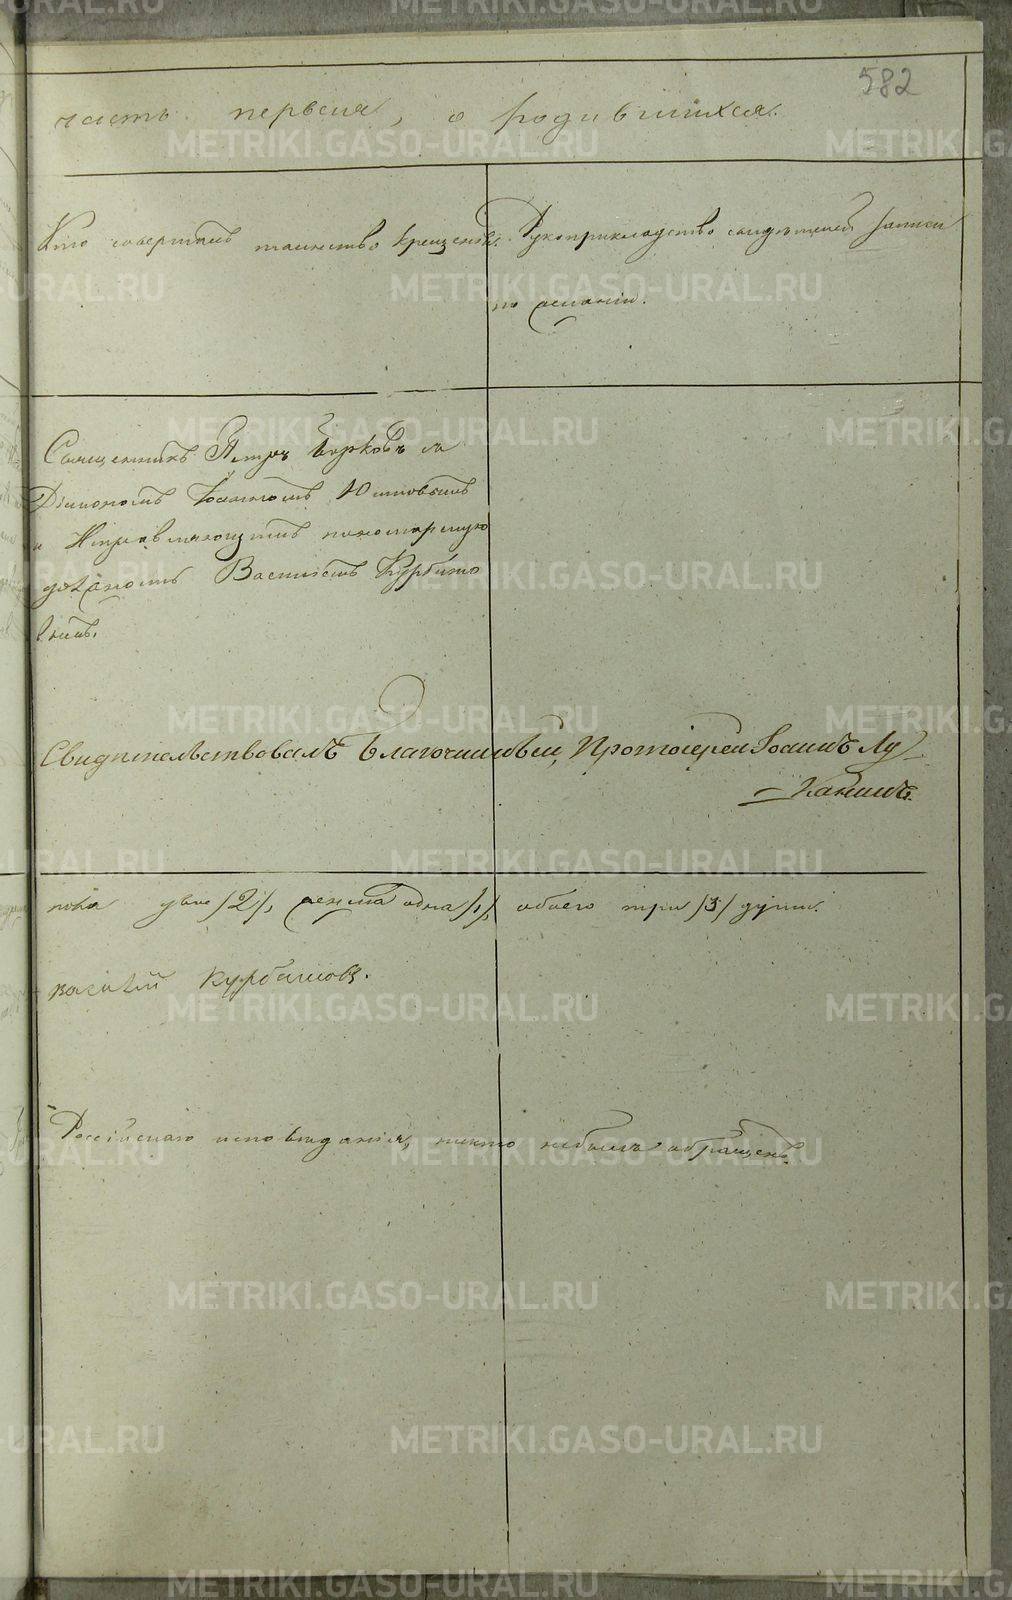 582
часть первая, о родившихся.
Кто совершалъ таинство крещенія.
Рукоприкладство свидѣтелей записи
по желанію.
Священникъ Петръ съ
Діакономъ Іоанномъ
и Исправляющимъ пономарскую
должность Василіемъ Курбато
вымъ.
Свидѣтельствовалъ Благочинный, Протоіерей Іоаннъ Лу
канинъ.
пола два /2/, женска одна /1/, обоего три /3/ души.
Василій Курбатовъ.
Россійскаго исповѣданія, никто небылъ обращенъ.
METRIKI.GASO-URAL.RU